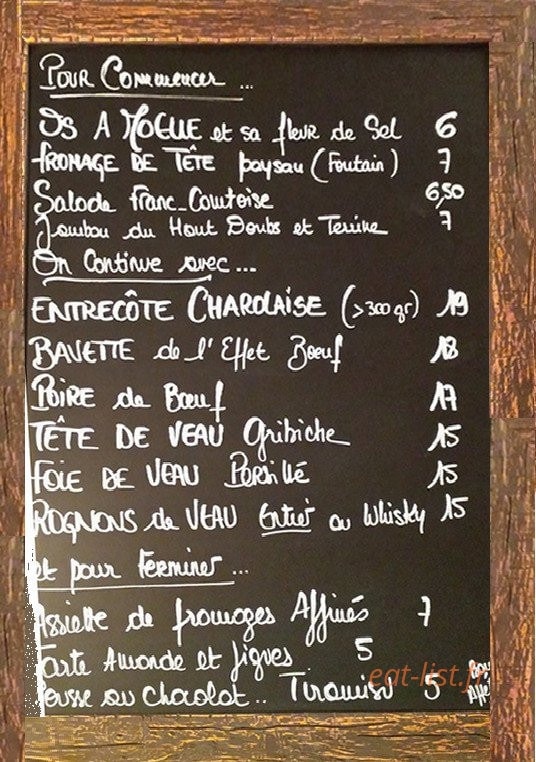 Pour Commencer ...
OS A MOELLE et sa fleur de Sel 6
FROMAGE DE TÊTE paysan (Foutain) 7
Salade Franc-Comtoise 6,50
Jambon du Haut Doubs et Terrine 7
On Continue avec...
ENTRECÔTE CHAROLAISE (>300 gr) 19
BAVETTE de l'Effet Boeuf 18
POIRE de Bœuf 17
TÊTE DE VEAU Gribiche 15
FOIE DE VEAU Persillé 15
ROGNONS de VEAU Entier au Whisky 15
et pour Terminer ...
Assiette de fromages Affinés 7
Tarte Amande et figues 5
Mousse au Chocolat.. Tiramisu 5
eat-list.fr